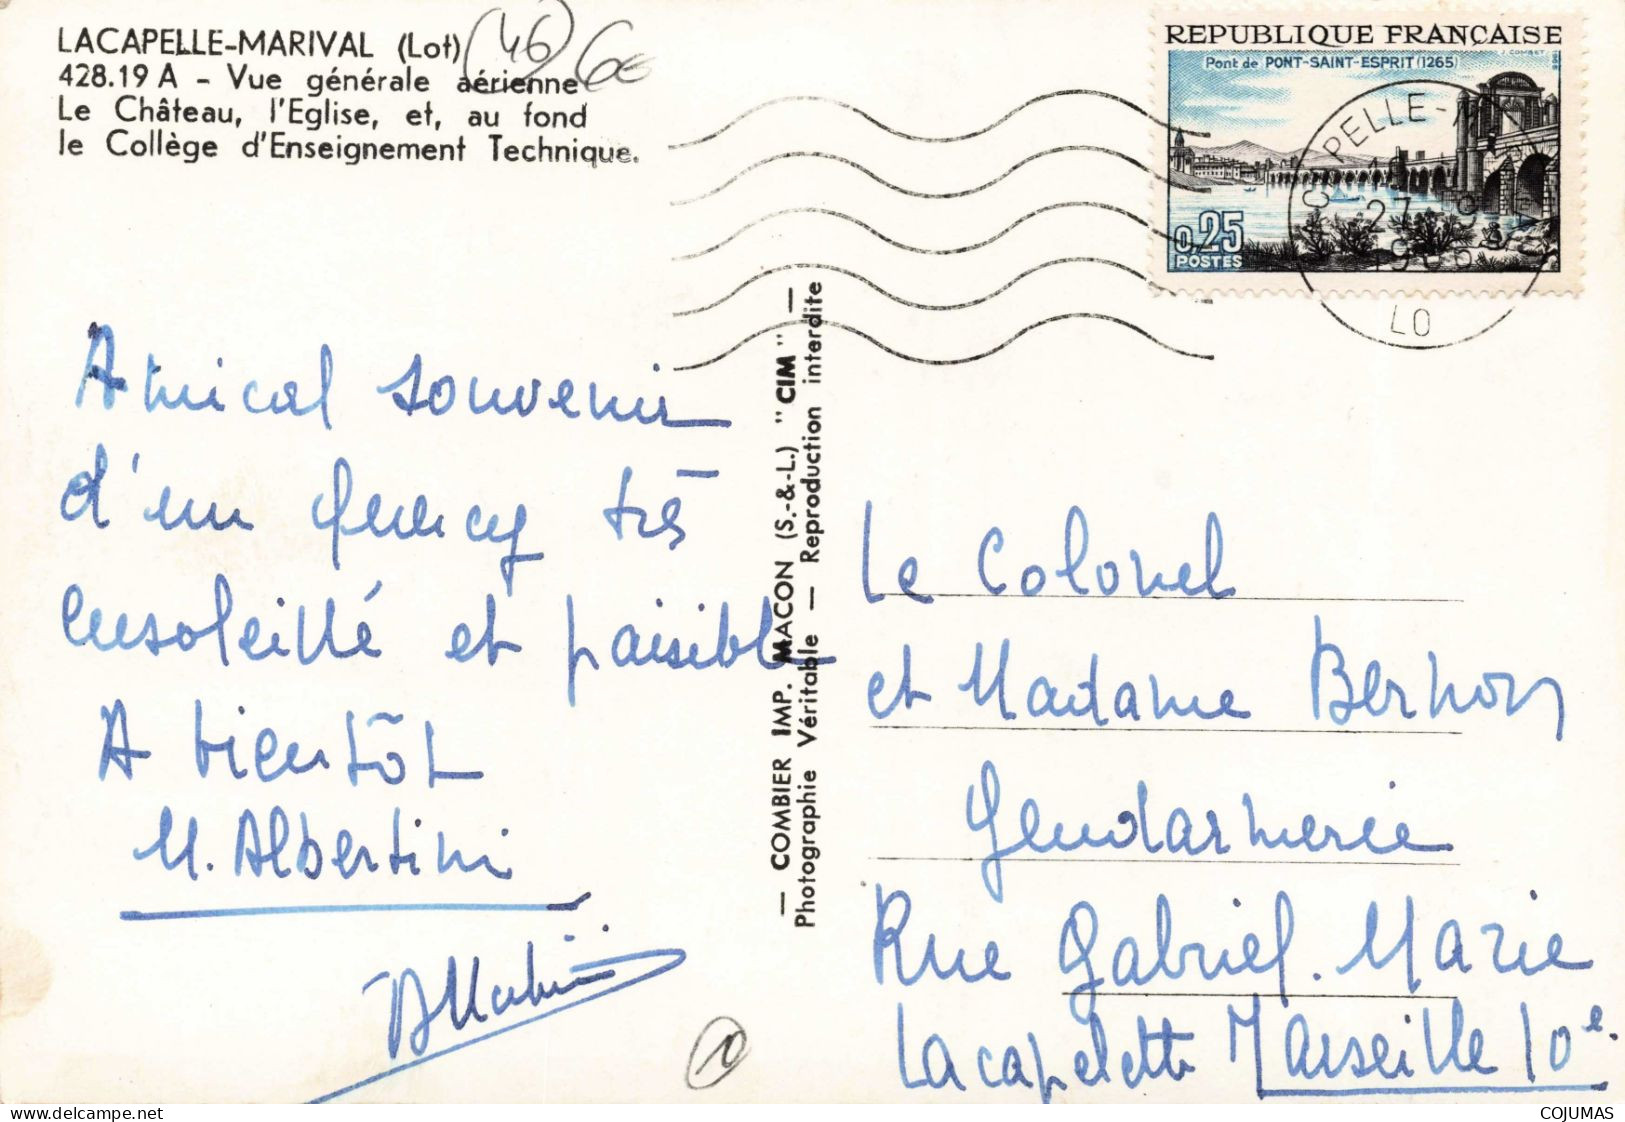 LACAPELLE-MARIVAL (Lot)
428.19 A - Vue générale aérienne
Le Château, l'Eglise, et, au fond
le Collège d'Enseignement Technique.
(46) 6€
REPUBLIQUE FRANÇAISE
Pont de PONT-SAINT-ESPRIT (1265)
0,25
POSTES
PELLE-MA
27
LO
Amical souvenir
d'un Quercy très
ensoleillé et paisible
A bientôt
M. Albertini
— COMBIER IMP. MACON (S.-&-L.) "CIM" —
Photographie Véritable — Reproduction interdite
Le Colonel
et Madame Bernon
Gendarmerie
Rue Gabriel. Marie
La capelette Marseille 10e.
10
COJUMAS